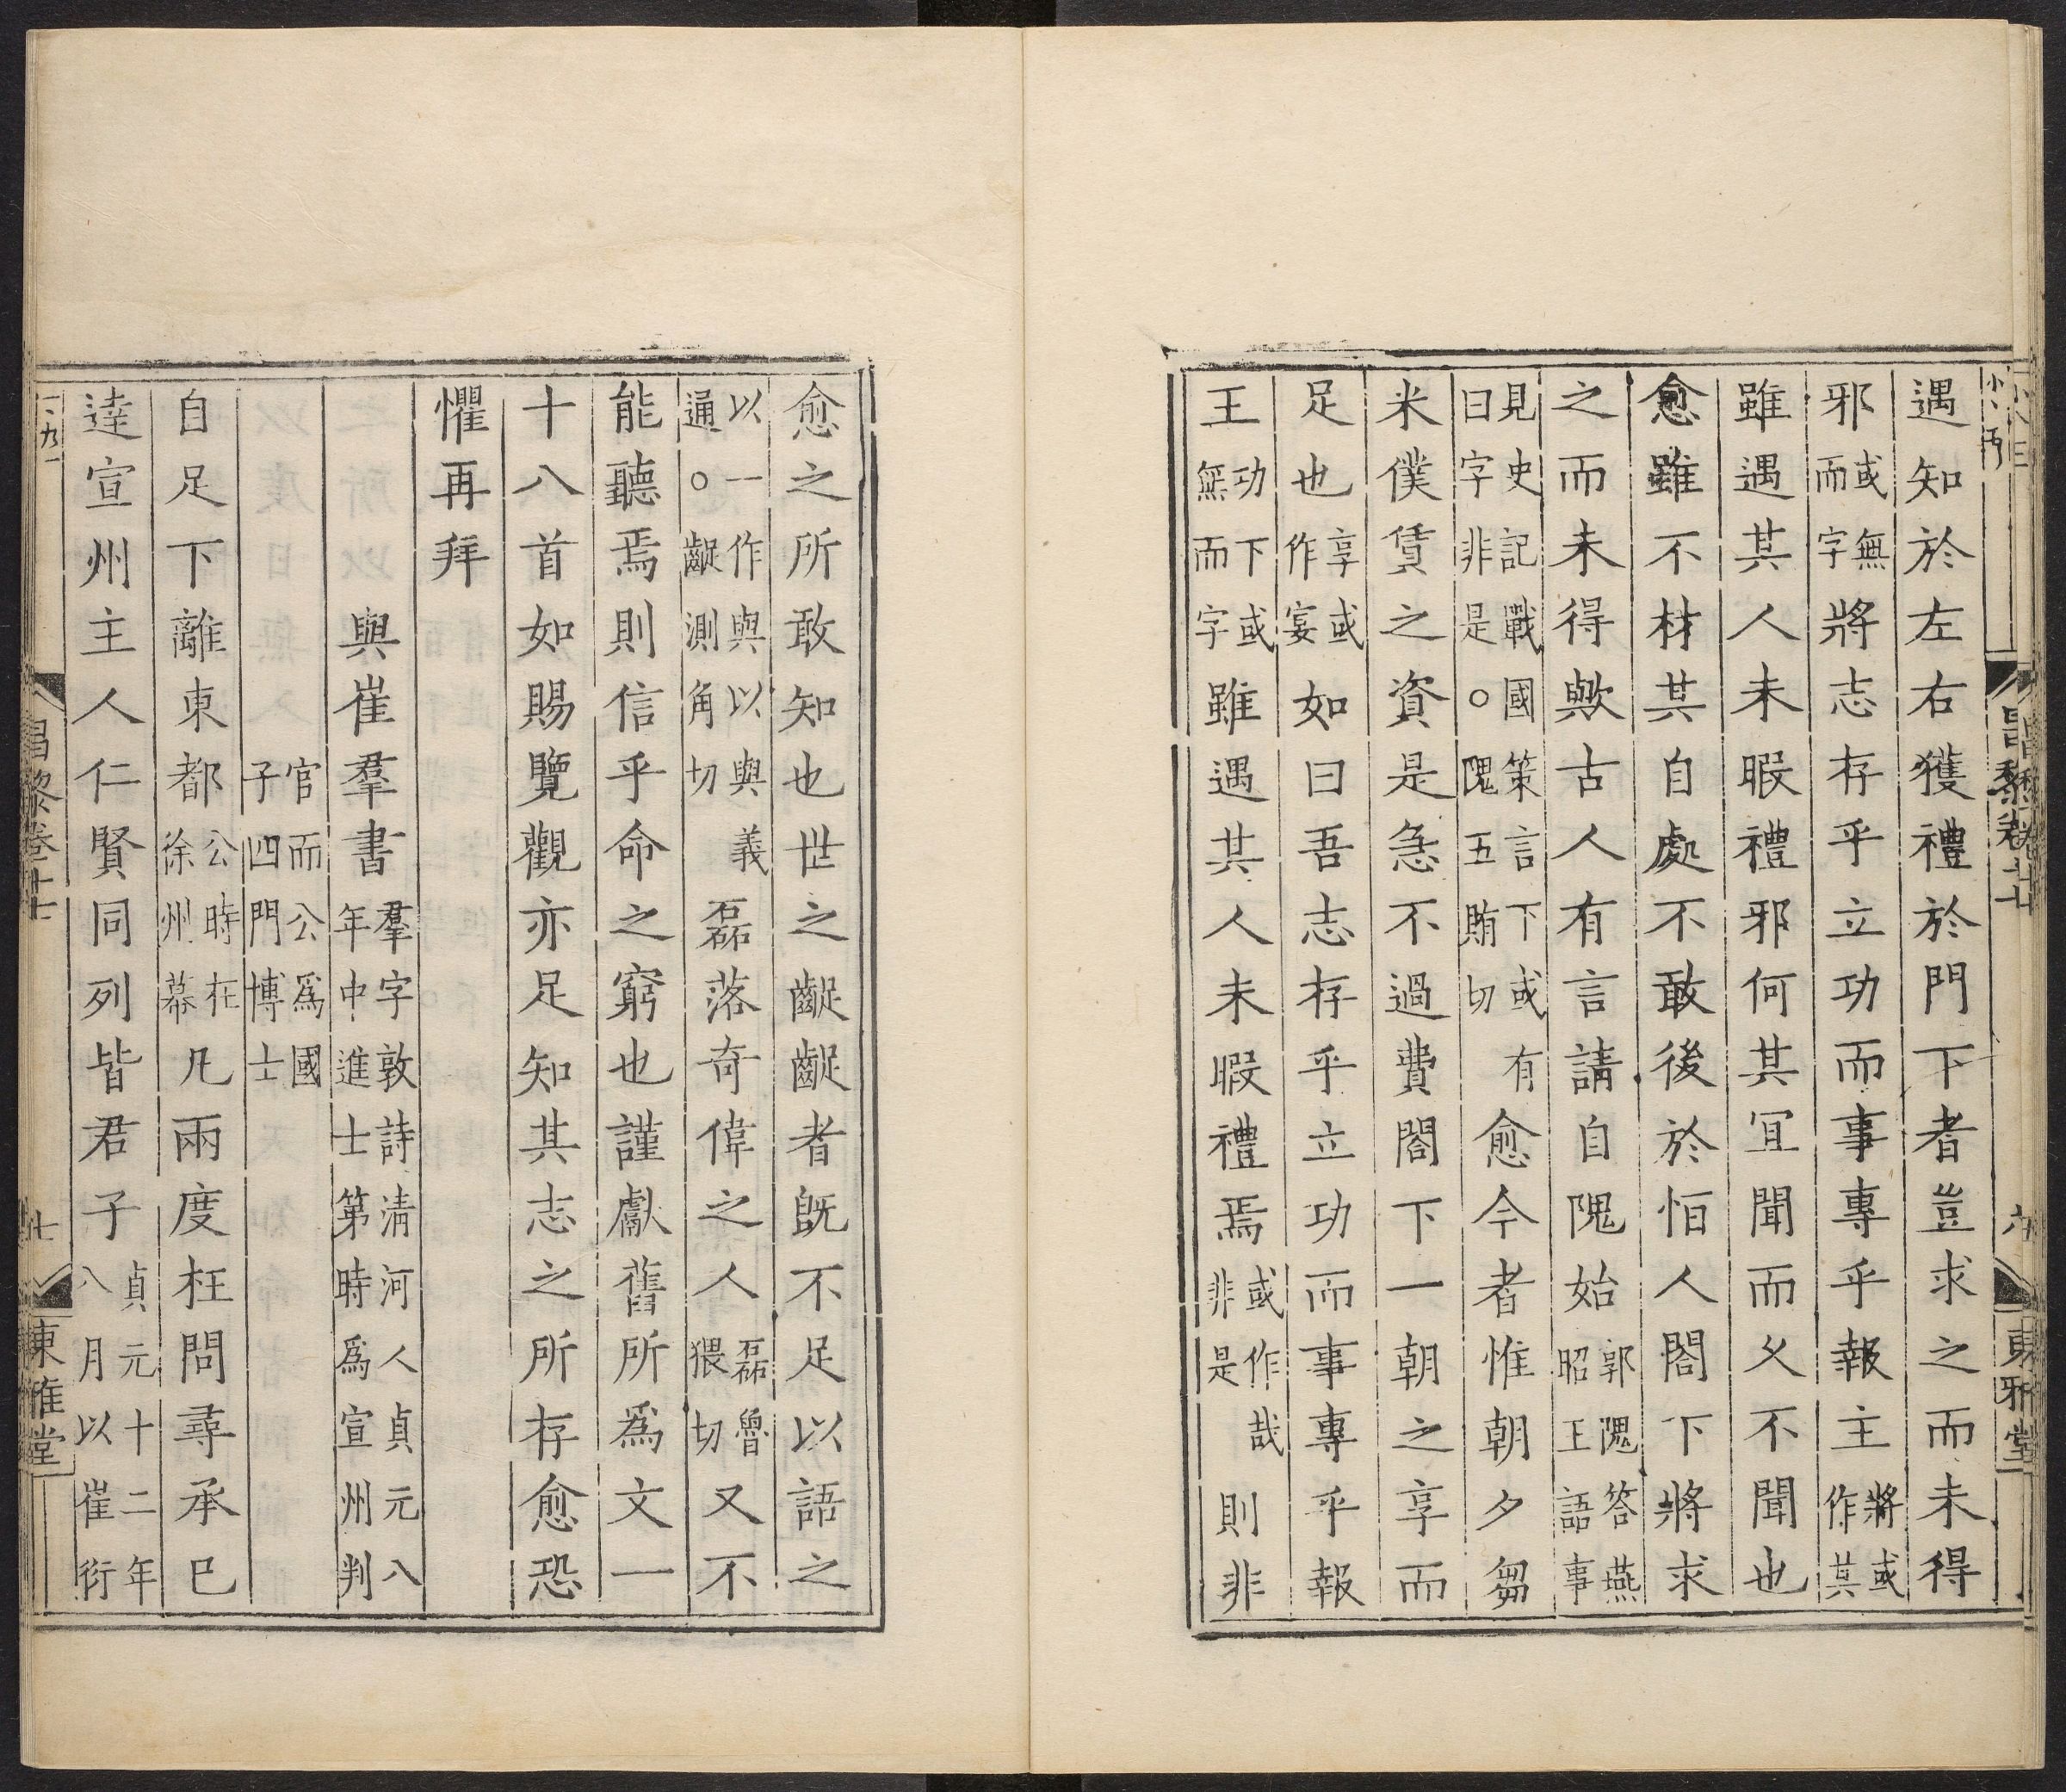 遇知於左右獲禮於門下者豈求之而未得
邪或無而字將志存乎立功而事專乎報主將或作其
雖遇其人未暇禮邪何其宜聞而久不聞也
愈雖不材其自處不敢後於恒人閤下將求
之而未得歟古人有言請自隗始郭隗答燕昭王語事
見史記戰國策言下或有曰字非是○隗五賄切愈今者惟朝夕芻
米僕賃之資是急不過費閤下一朝之享而
足也享或作宴如曰吾志存乎立功而事專乎報
王功下或無而字雖遇其人未暇禮焉或作哉非是則非
愈之所敢知也世之齪齪者旣不足以語之
以一作與以與義通○齪測角切磊落奇偉之人磊魯猥切又不
能聽焉則信乎命之窮也謹獻舊所爲文一
十八首如賜覽觀亦足知其志之所存愈恐
懼再拜
與崔羣書羣字敦詩清河人貞元八年中進士第時爲宣州判
官而公爲國子四門博士
自足下離東都公時在徐州幕凡兩度枉問尋承已
達宣州主人仁賢同列皆君子貞元十二年八月以崔衍
昌黎卷十七
東雅堂